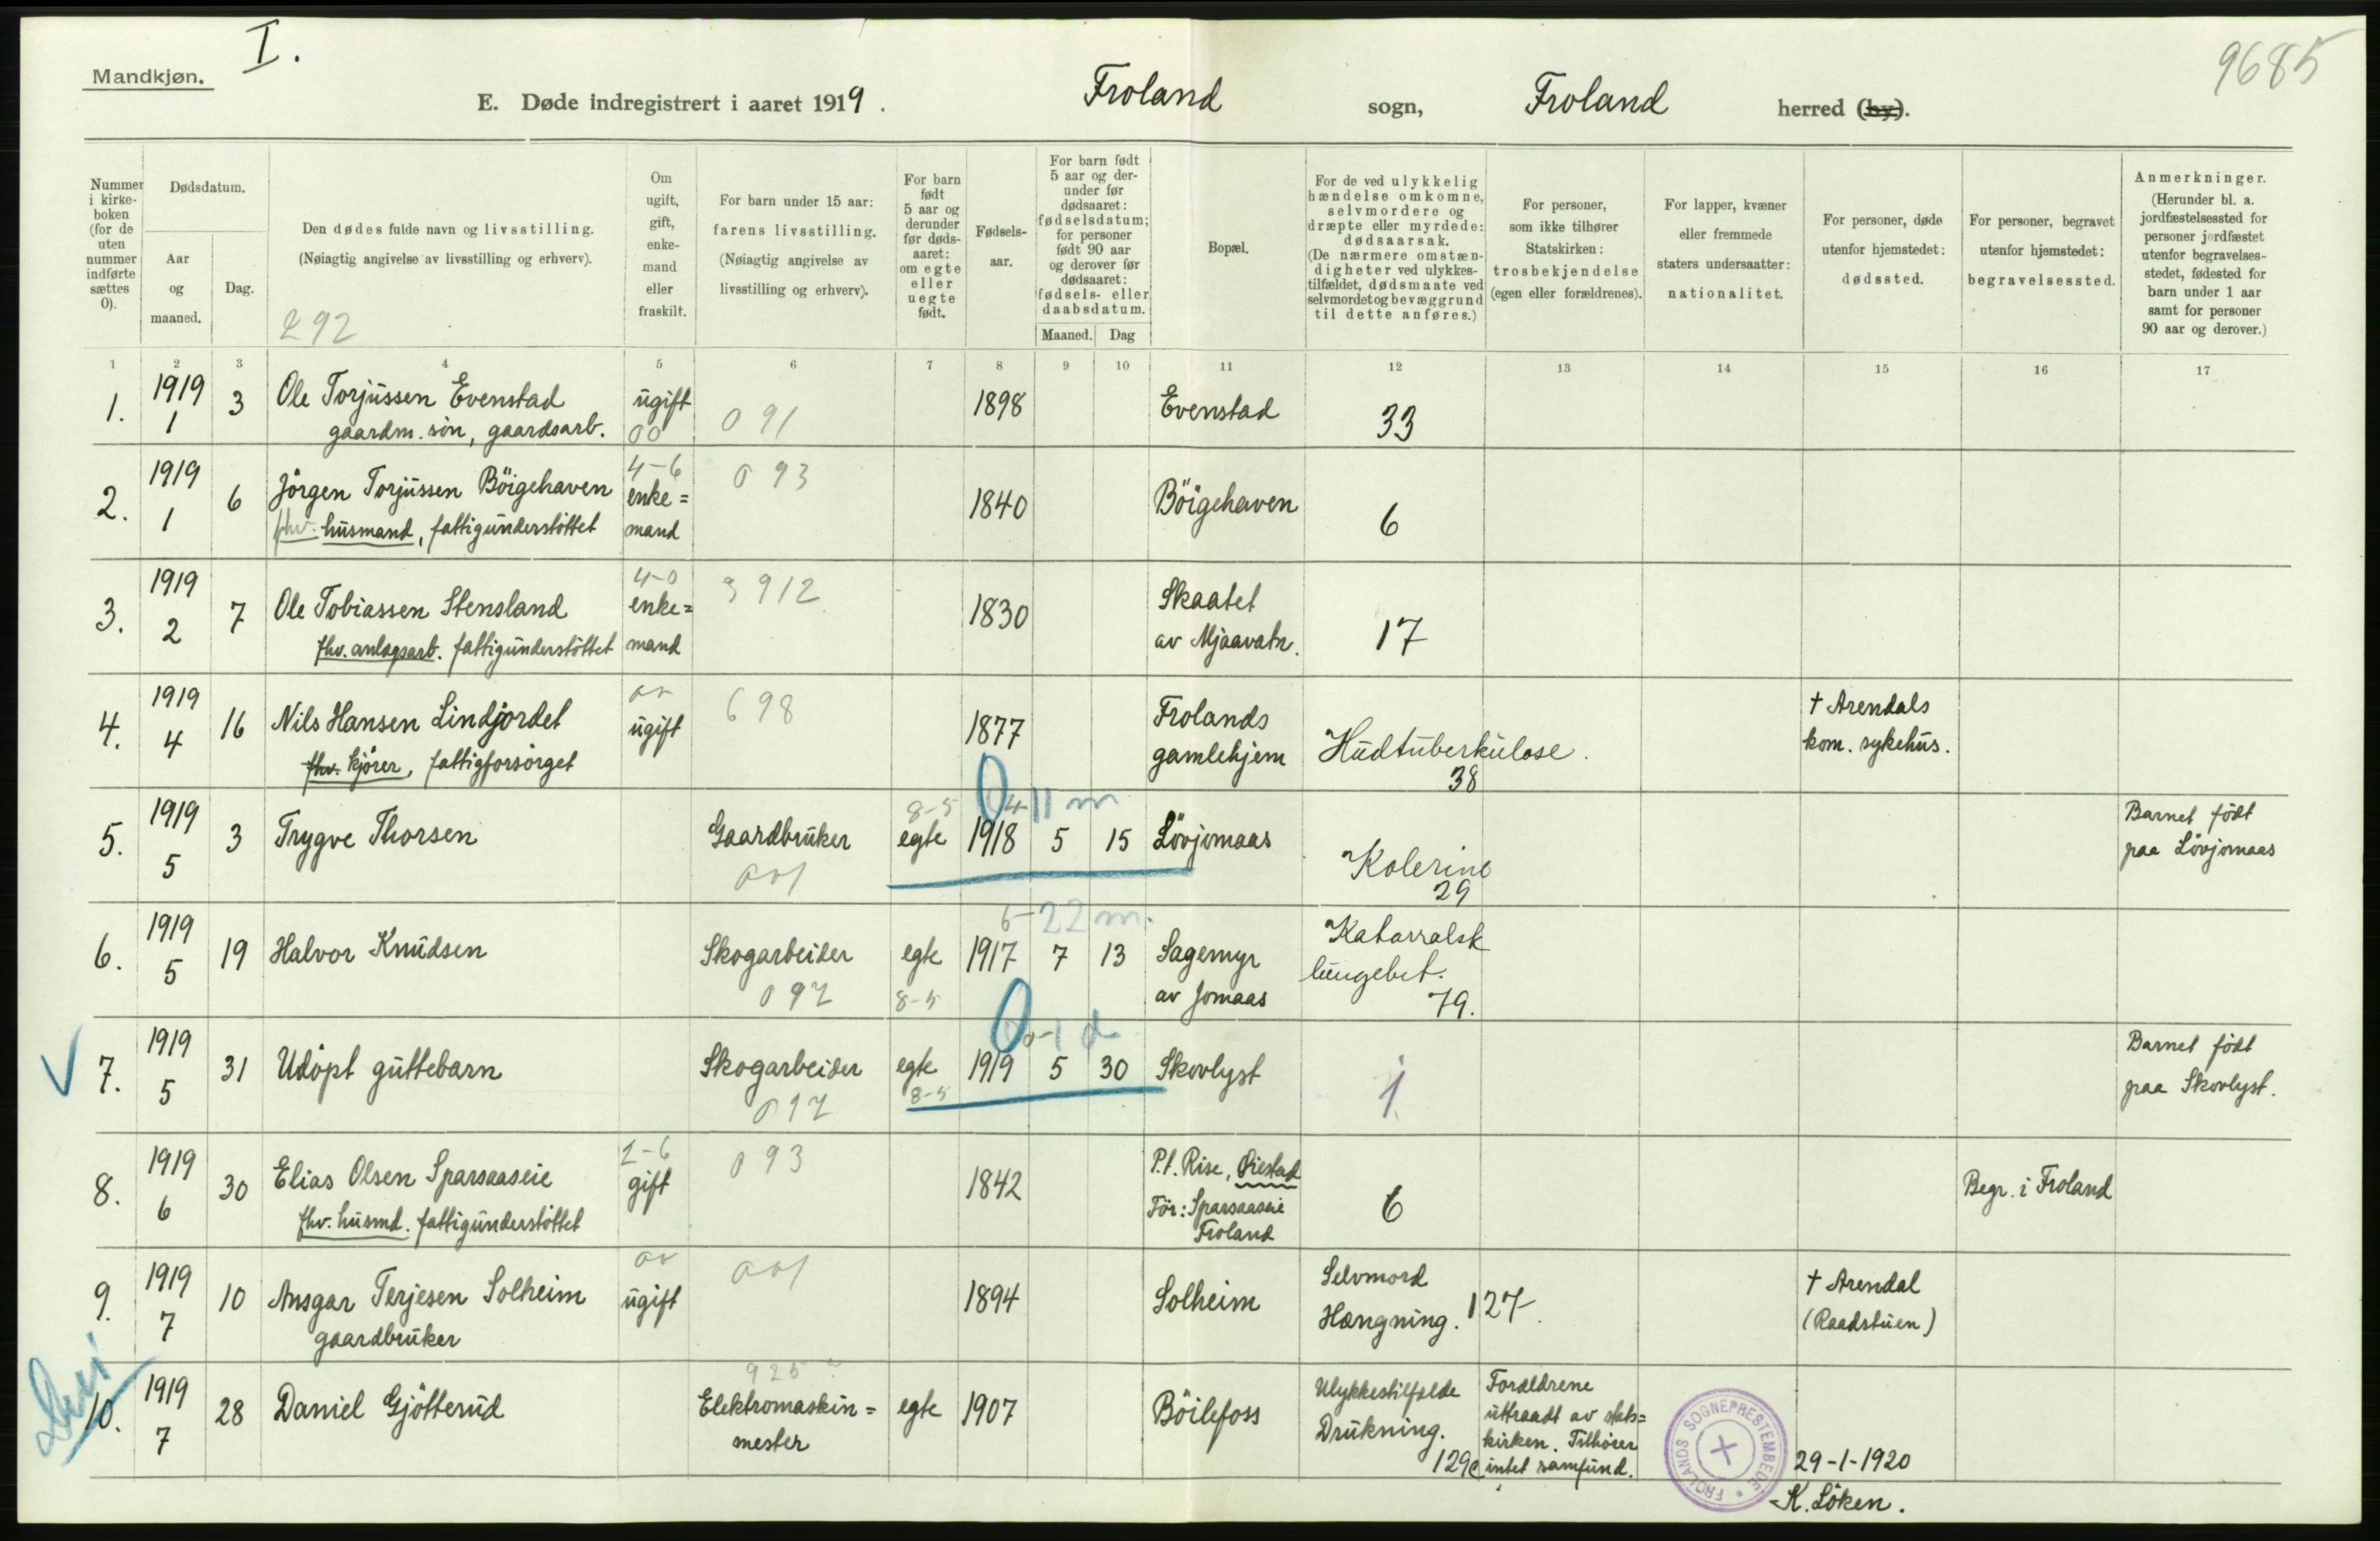 I.
9685
Mandkjøn.
E. Døde indregistrert i aaret 1919. Froland sogn, Froland herred (by).
Nummer i kirke-boken (for de uten nummer indførte sættes 0).
Dødsdatum.
Aar og maaned.
Dag.
Den dødes fulde navn og livsstilling.
(Nøiagtig angivelse av livsstilling og erhverv).
292
Om ugift, gift, enke-mand eller fraskilt.
For barn under 15 aar: farens livsstilling. (Nøiagtig angivelse av livsstilling og erhverv).
For barn født 5 aar og derunder før døds-aaret: om egte eller uegte født.
Fødsels-aar.
For barn født 5 aar og der-under før dødsaaret: fødselsdatum; for personer født 90 aar og derover før dødsaaret: fødsels- eller daabsdatum.
Maaned. Dag
Bopæl.
For de ved ulykkelig hændelse omkomne, selvmordere og dræpte eller myrdede: dødsaarsak. (De nærmere omstæn-digheter ved ulykkes-tilfældet, dødsmaate ved selvmordet og bevæggrund til dette anføres.)
For personer, som ikke tilhører Statskirken: trosbekjendelse (egen eller forældrenes).
For lapper, kvæner eller fremmede staters undersaatter: nationalitet.
For personer, døde utenfor hjemstedet: dødssted.
For personer, begravet utenfor hjemstedet: begravelsessted.
Anmerkninger. (Herunder bl. a. jordfæstelsessted for personer jordfæstet utenfor begravelses-stedet, fødested for barn under 1 aar samt for personer 90 aar og derover.)
1 2 3 4 5 6 7 8 9 10 11 12 13 14 15 16 17
1. 1919 1 3 Ole Torjussen Evenstad ugift 091 1898 Evenstad 33
gaardm. sön, gaardsarb. 00
2. 1919 1 6 Jörgen Torjussen Böigehaven 4-6 enke= 093 1840 Böigehaven 6
fhv. husmand, fattigunderstöttet mand
3. 1919 2 7 Ole Tobiassen Stensland 4-0 enke= 912 1830 Skaatet 17
fhv. anlagsarb. fattigunderstöttet mand av Mjaavatn.
4. 1919 4 16 Nils Hansen Lindjordet ugift 698 1877 Frolands Hudtuberkulose. † Arendals
fhv. kjörer, fattigforsörget gamlehjem 38 kom. sykehus.
5. 1919 5 3 Trygve Thorsen Gaardbruker 8-5 egte 11 m 1918 5 15 Lövjomaas Kolerine 29 Barnet födt
paa Lövjomaas
6. 1919 5 19 Halvor Knudsen Skogarbeider egte 22 m. 1917 7 13 Sagemyr Katarralsk
092 8-5 av Jomaas lungebet. 79.
7. 1919 5 31 Udöpt guttebarn Skogarbeider egte 1 d 1919 5 30 Skovlyst 1 Barnet födt
8-5 paa Skovlyst.
8. 1919 6 30 Elias Olsen Sparsaaseie gift 093 1842 P.t. Rise, Öiestad 6 Begr. i Froland
fhv. husmd. fattigunderstöttet För: Sparsaaseie
Froland
9. 1919 7 10 Ansgar Terjesen Solheim ugift 1894 Solheim Selvmord † Arendal
gaardbruker Hængning. 127 (Raadstuen)
10. 1919 7 28 Daniel Gjötterud 925 Elektromaskin= egte 1907 Böilefoss Ulykkestilfælde Forældrene
mester Drukning. uttraadt av stats=
kirken. Tilhörer
129c intet samfund.
FROLANDS SOGNEPRESTEMBEDE
29-1-1920
K. Löken.